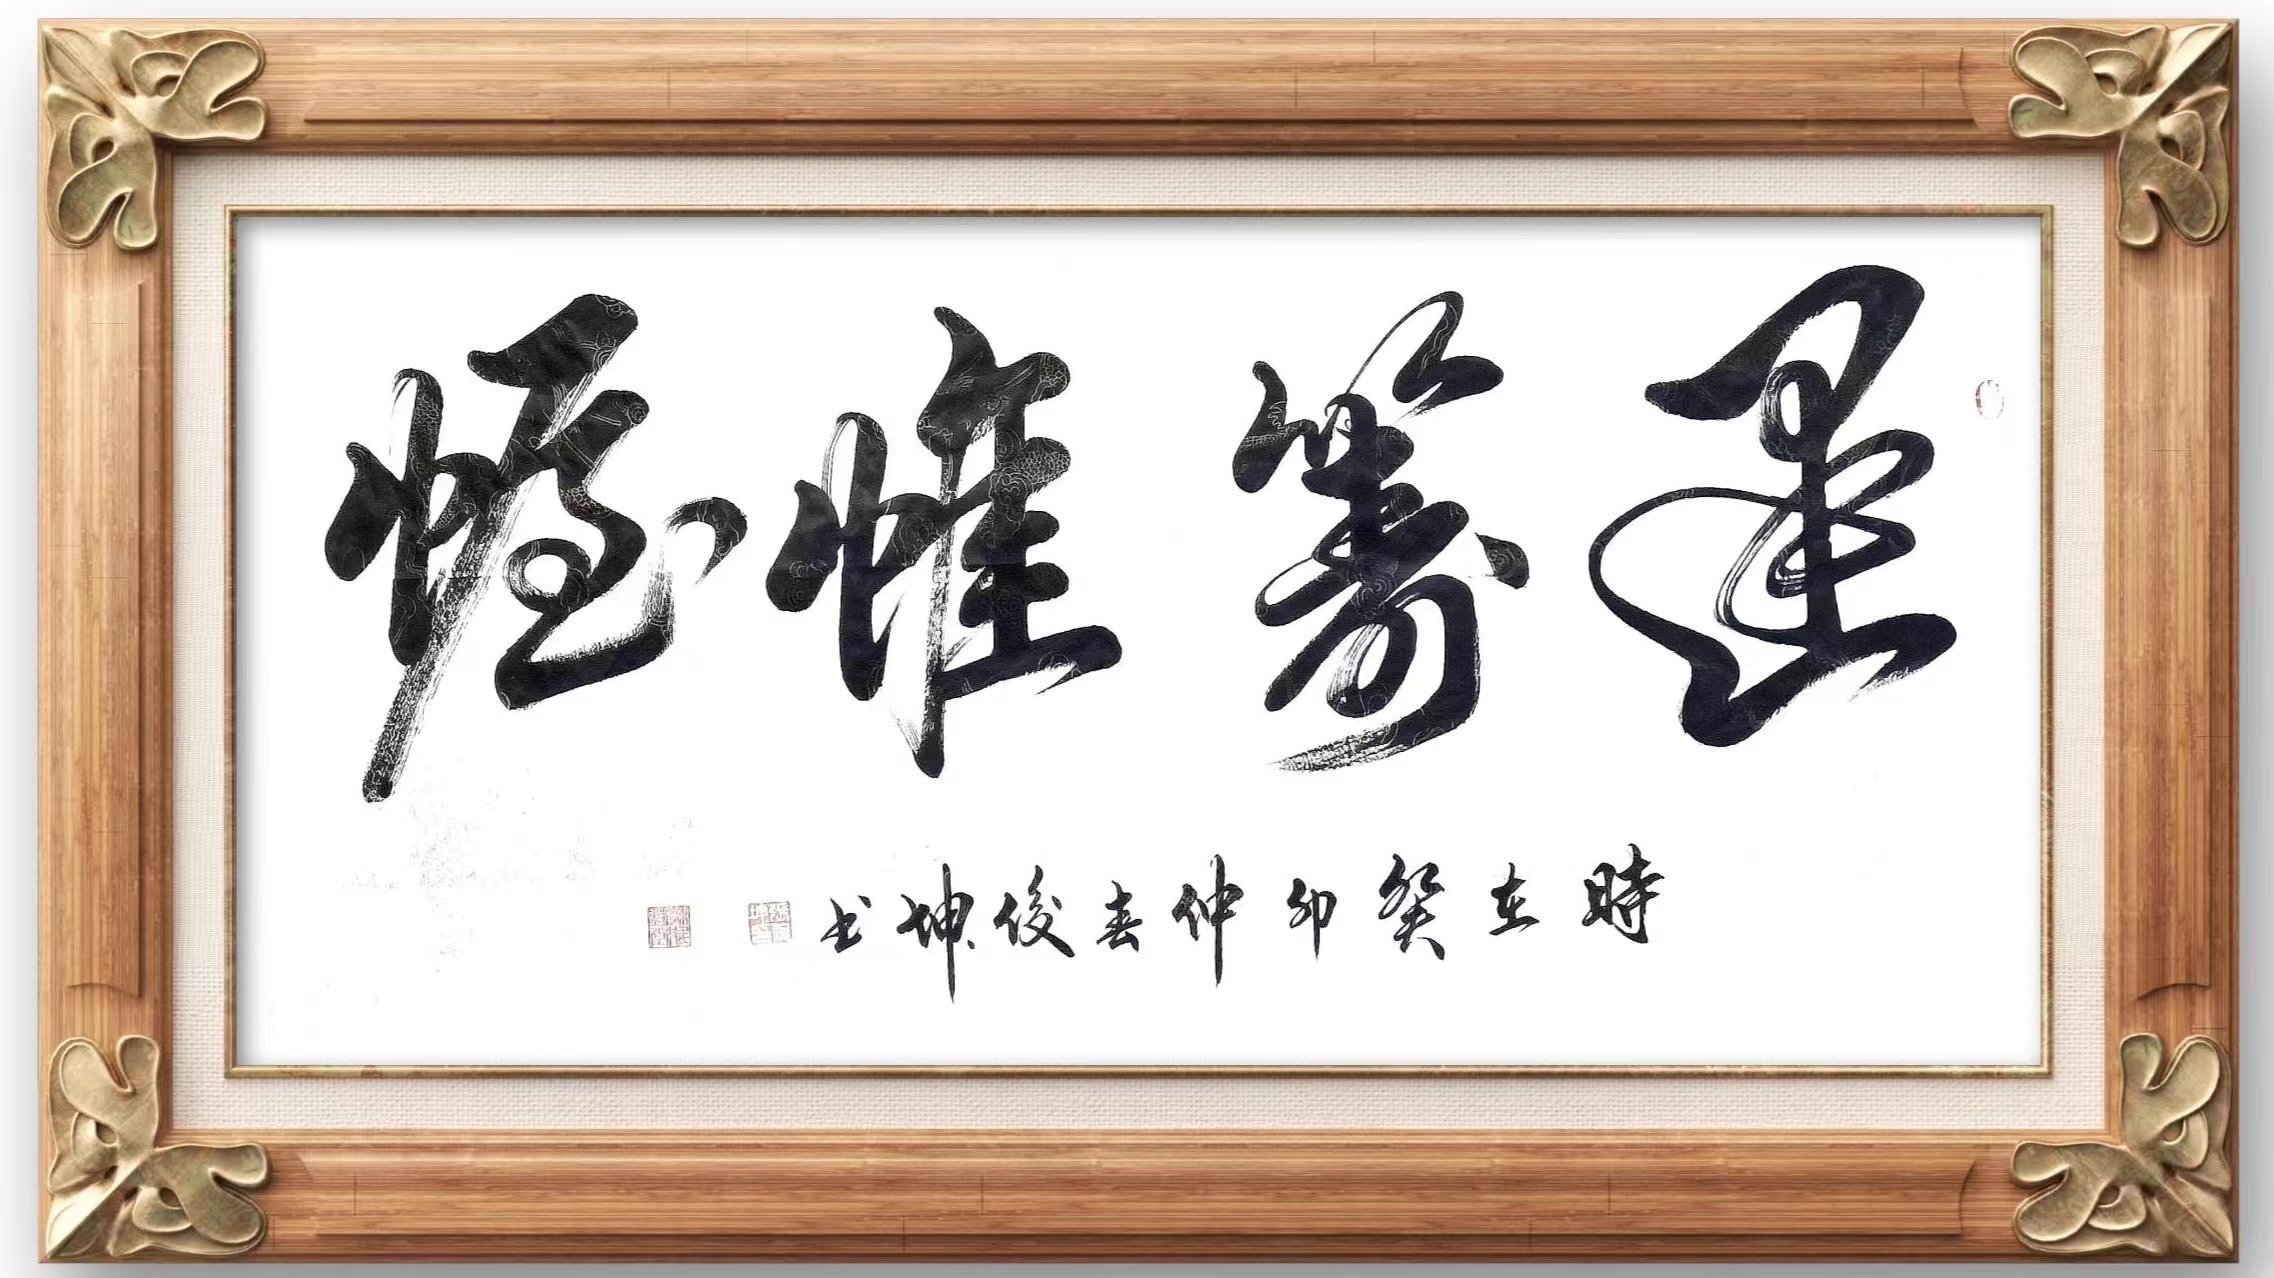 運籌帷幄
時在癸卯仲春俊坤书